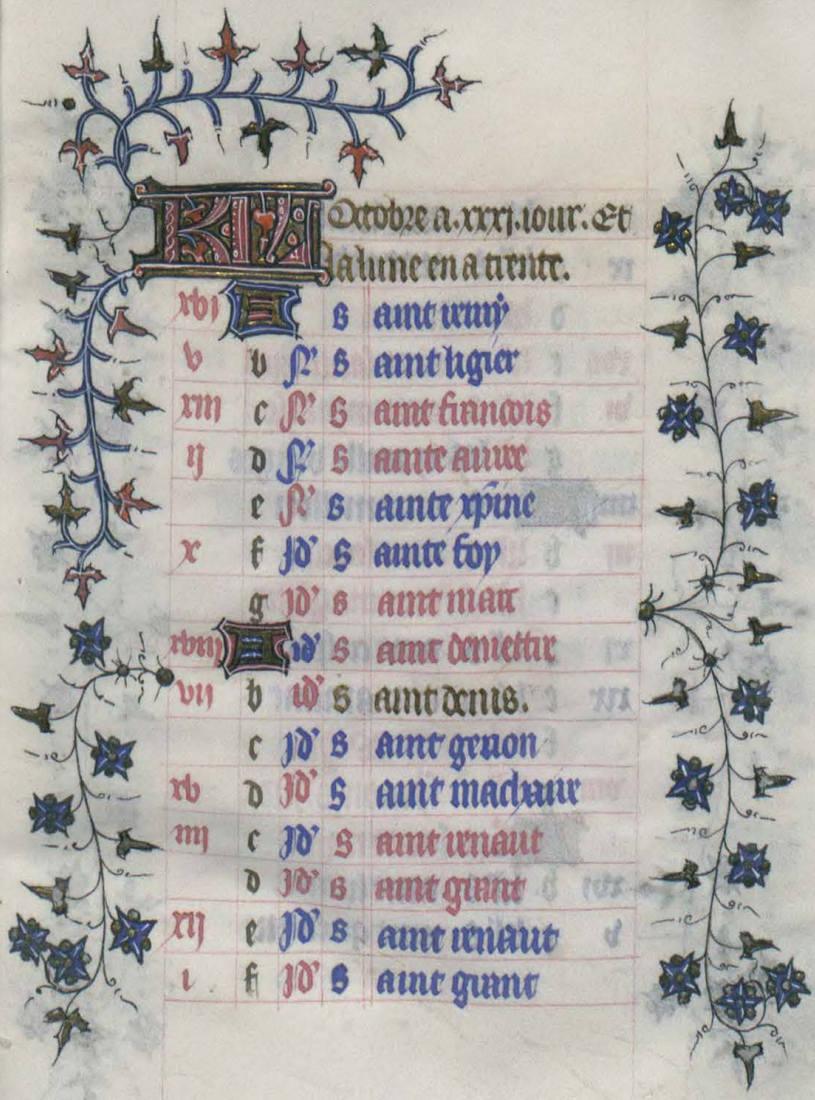 KL Octobre a .xxxj. iour. Et
la lune en a trente.
xvj A S aint remy
v b N' S aint ligier
xiii c N' S aint francois
ij d N' S ainte aurre
e N' S ainte xp̄ine
x f Jd' S ainte foy
g Jd' S aint marc
xviij A id' S aint demettre
vij b id' S aint denis.
c Jd' S aint gerion
xv d Jd' S aint
iiij c Jd' S aint renaut
d Jd' S aint girant
xij e Jd' S aint renaut
i f Jd' S aint girant